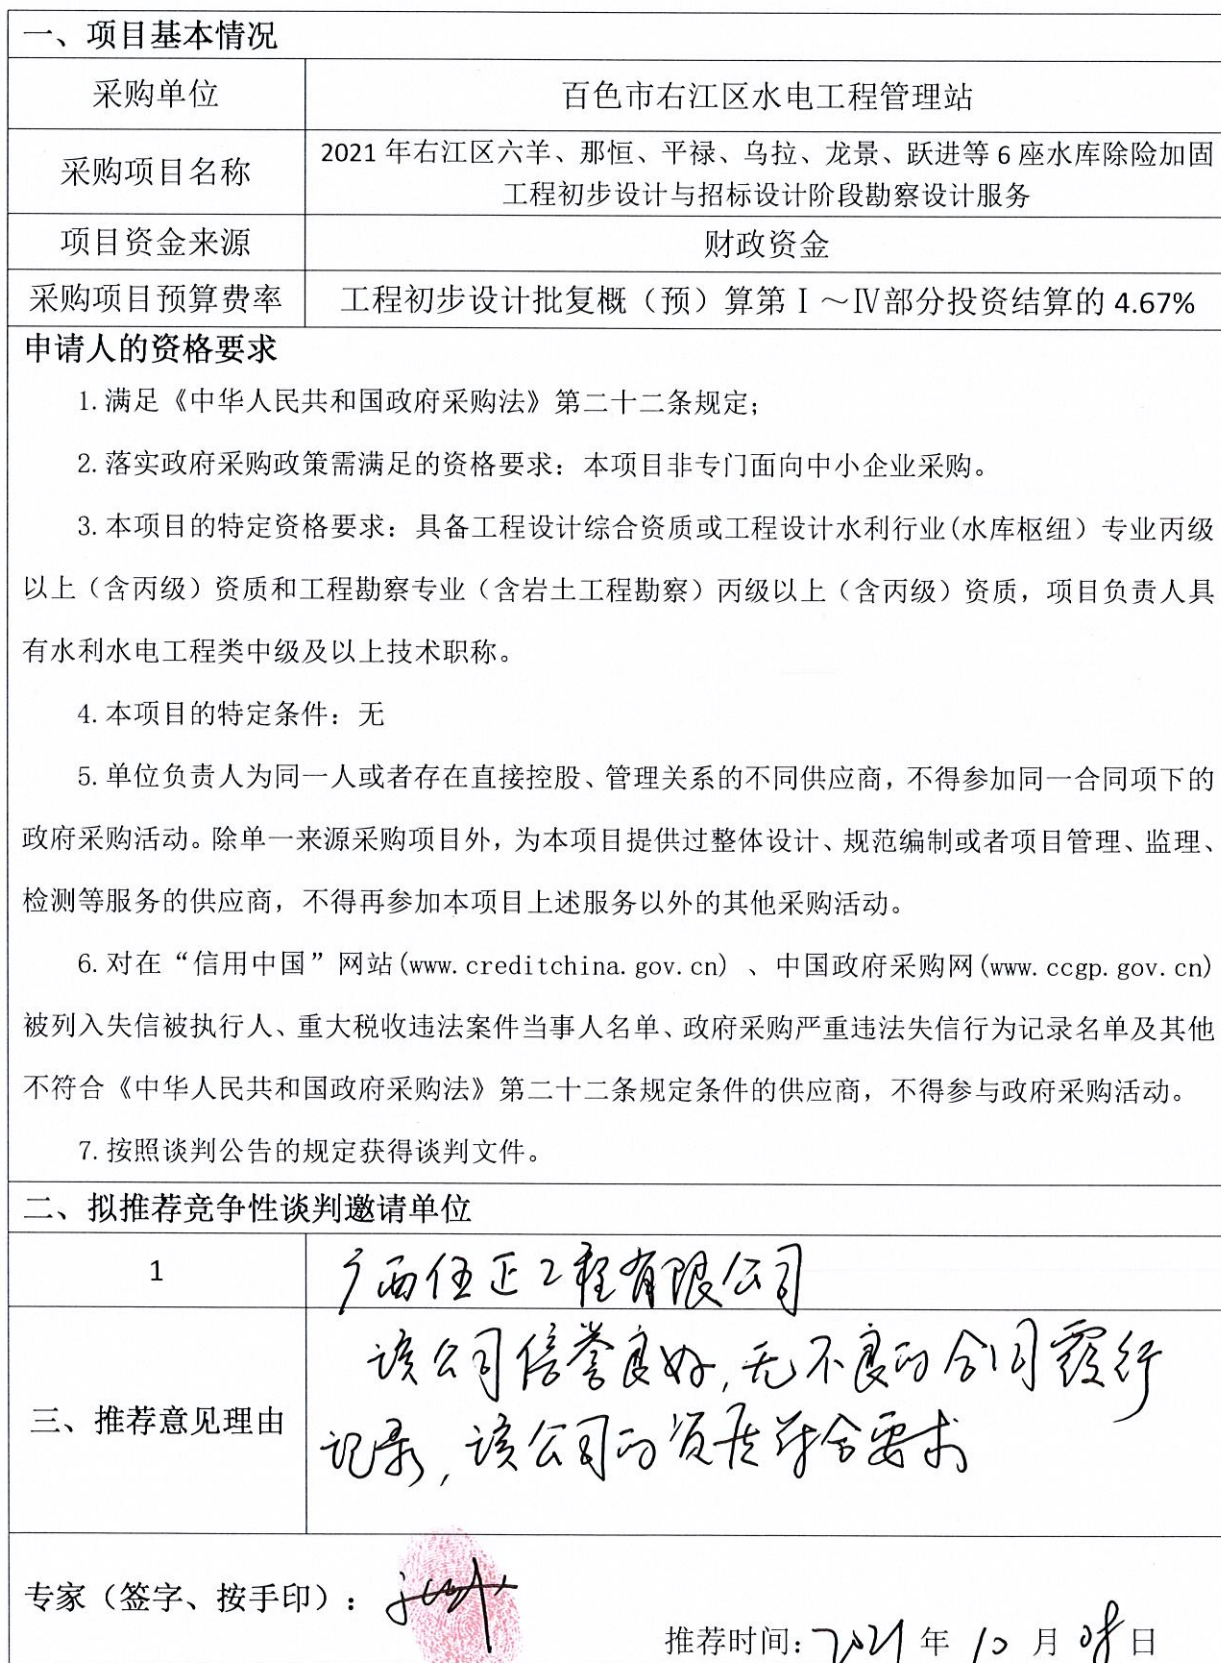 一、项目基本情况
采购单位
百色市右江区水电工程管理站
采购项目名称
2021年右江区六羊、那恒、平禄、乌拉、龙景、跃进等6座水库除险加固
工程初步设计与招标设计阶段勘察设计服务
项目资金来源
财政资金
采购项目预算费率
工程初步设计批复概（预）算第Ⅰ～Ⅳ部分投资结算的4.67%
申请人的资格要求
1.满足《中华人民共和国政府采购法》第二十二条规定；
2.落实政府采购政策需满足的资格要求：本项目非专门面向中小企业采购。
3.本项目的特定资格要求：具备工程设计综合资质或工程设计水利行业(水库枢纽）专业丙级
以上（含丙级）资质和工程勘察专业（含岩土工程勘察）丙级以上（含丙级）资质，项目负责人具
有水利水电工程类中级及以上技术职称。
4.本项目的特定条件：无
5.单位负责人为同一人或者存在直接控股、管理关系的不同供应商，不得参加同一合同项下的
政府采购活动。除单一来源采购项目外，为本项目提供过整体设计、规范编制或者项目管理、监理、
检测等服务的供应商，不得再参加本项目上述服务以外的其他采购活动。
6.对在“信用中国”网站(www.creditchina.gov.cn) 、中国政府采购网(www.ccgp.gov.cn)
被列入失信被执行人、重大税收违法案件当事人名单、政府采购严重违法失信行为记录名单及其他
不符合《中华人民共和国政府采购法》第二十二条规定条件的供应商，不得参与政府采购活动。
7.按照谈判公告的规定获得谈判文件。
二、拟推荐竞争性谈判邀请单位
1
广西伍正工程有限公司
三、推荐意见理由
该公司信誉良好,无不良的合同履行
记录,该公司的资质符合要求
专家（签字、按手印）：
推荐时间:2021年10月08日